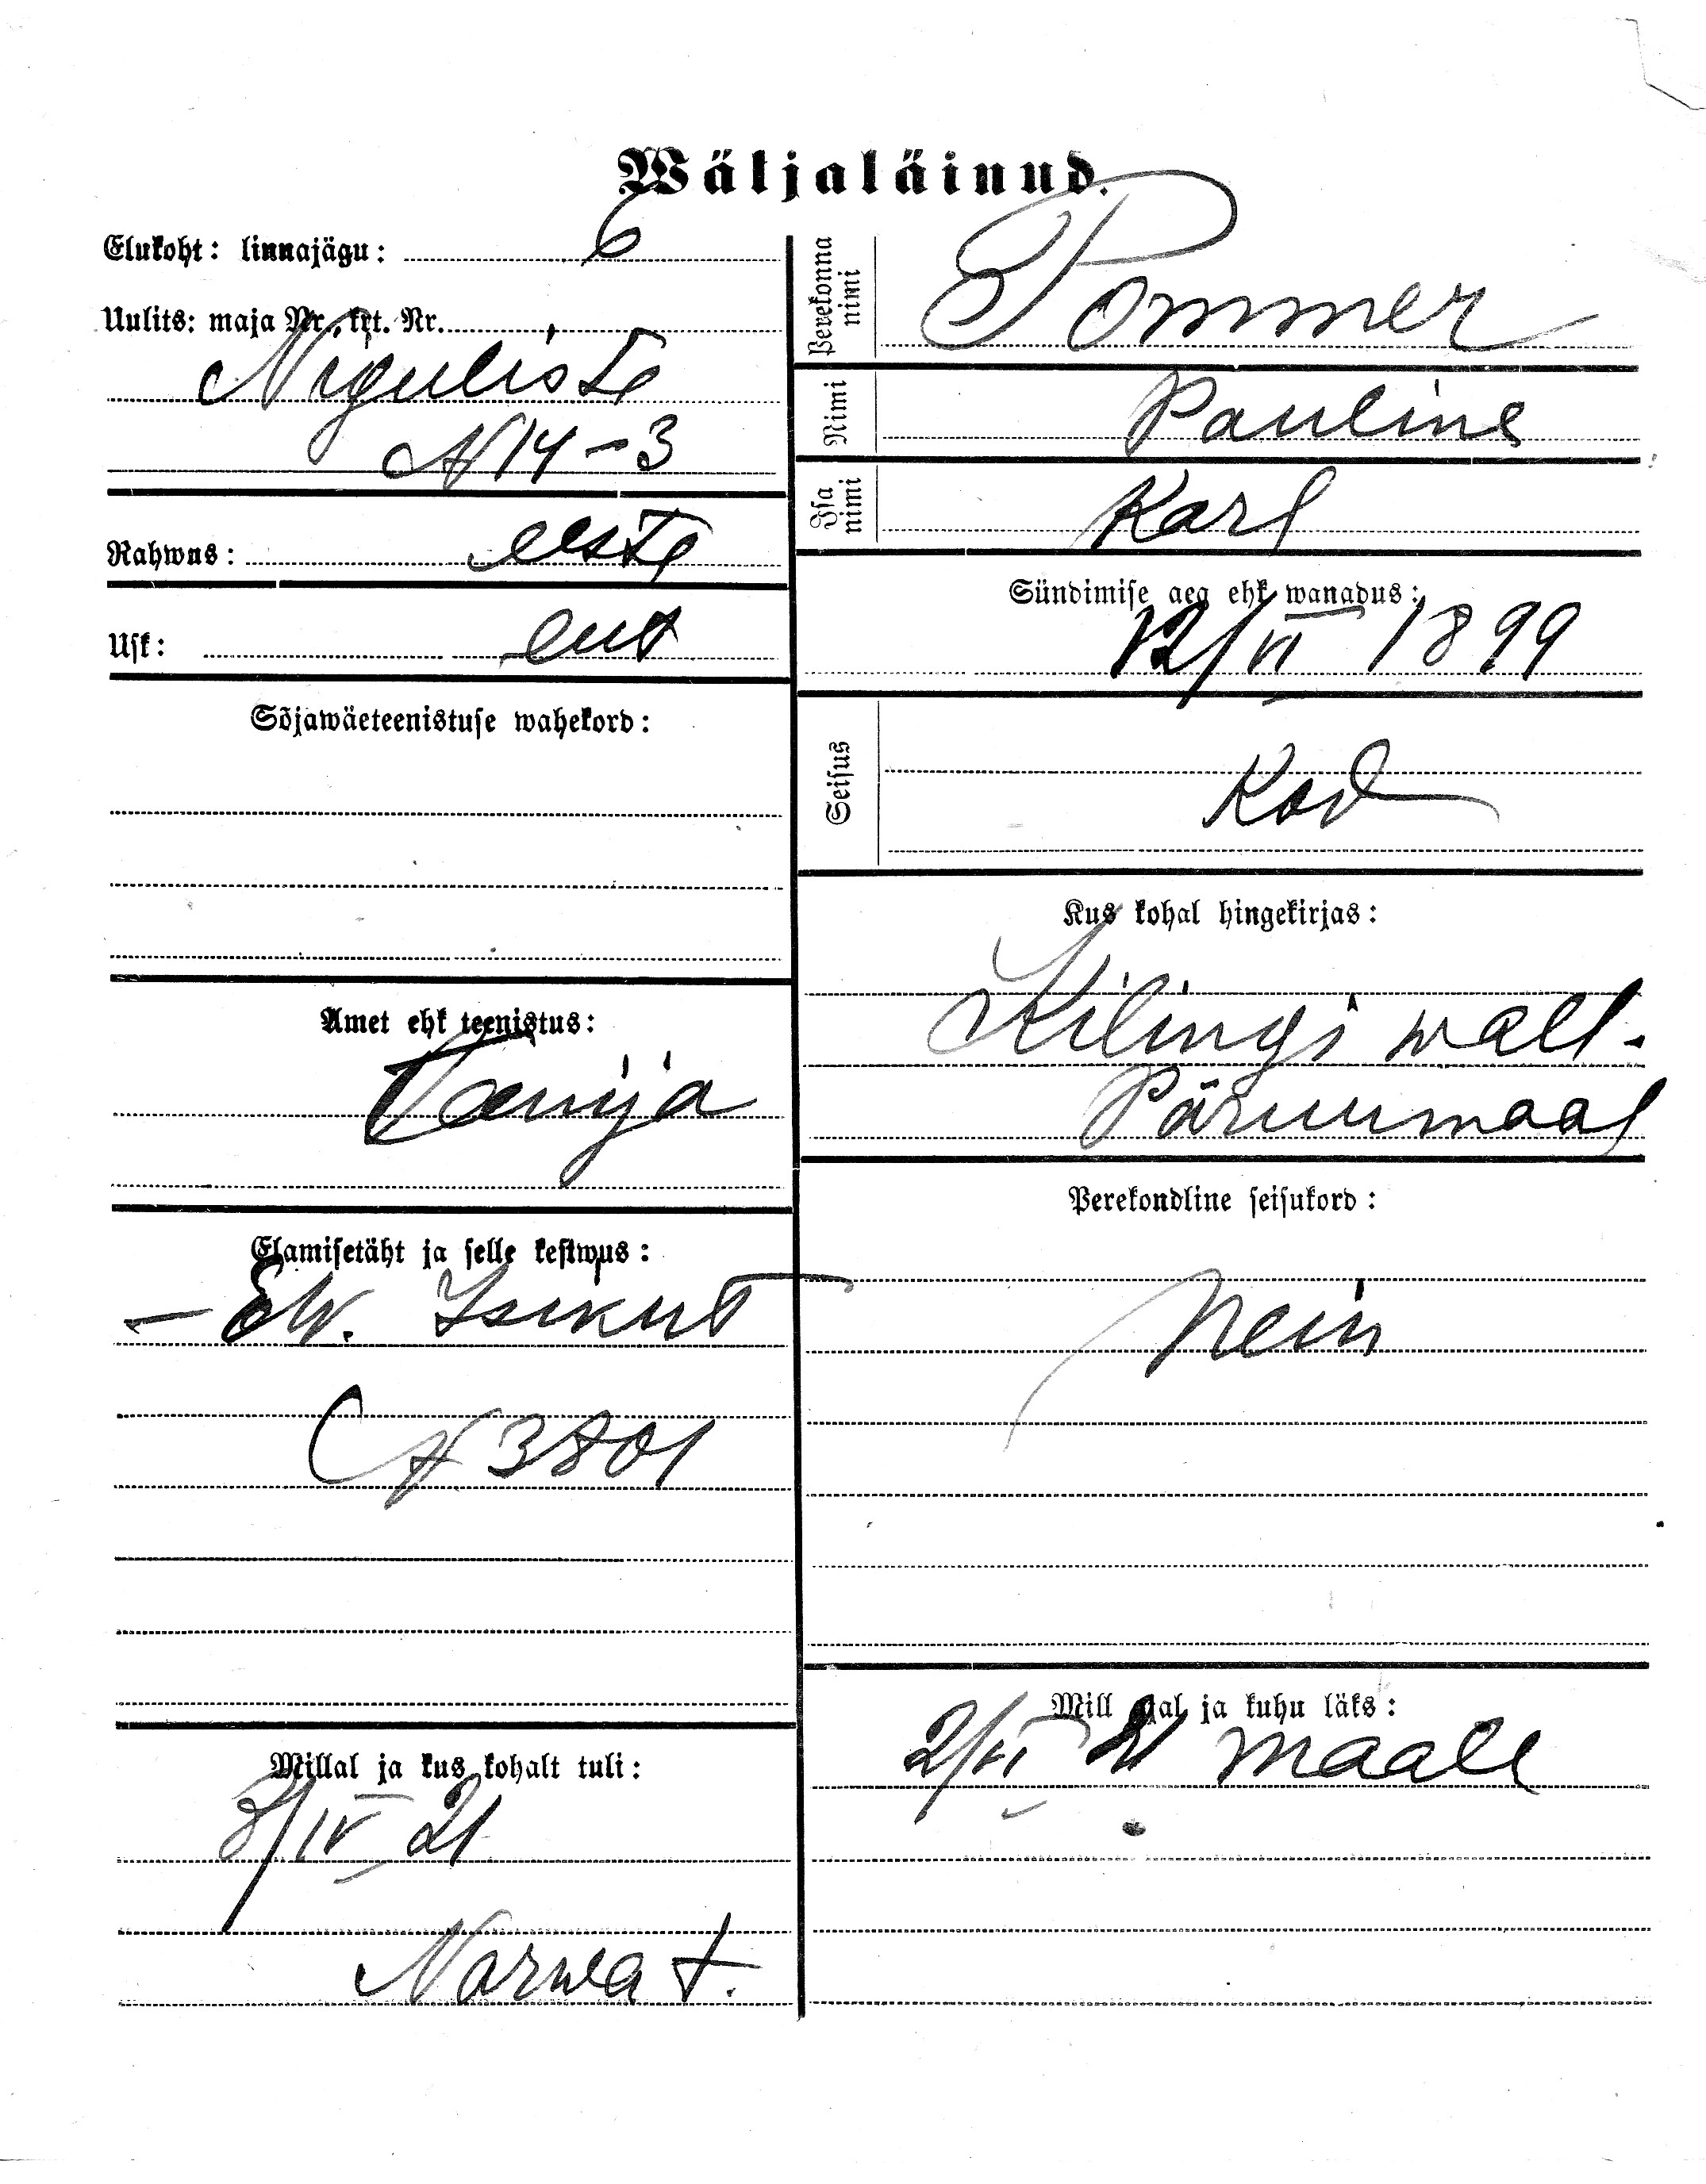 Wäljaläinud.
Elukoht: linnajägu: 6
Uulits: maja Nr., krt. Nr.
Niguliste
N 14-3
Rahwus: eeste
Usk: lut
Sõjawäeteenistuse wahekord:
Amet ehk teenistus:
Teenija
Elamisetäht ja selle kestwus:
- EW. Isikut
N 3801
Millal ja kus kohalt tuli:
8/IV 21
Narwa t.
Perekonna nimi Pommer
Nimi Pauline
Isa nimi Karl
Sündimise aeg ehk wanadus:
12/VI 1899
Seisus
Kod
Kus kohal hingekirjas:
Kilingi wall.
Pärnumaal
Perekondline seisukord:
Nein
Millal ja kuhu läks:
2/VI 21 maale